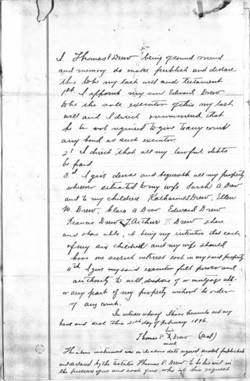 I Thomas Drew being of sound mind
and memory do make publish and declare
this to be my last will and testament
1st I appoint my son Edward Drew
to be the sole executor of this my last
will and I direct that
he be not required to give to any court
any bond as such executor.
2d I direct that all my lawful debts
be paid
3d I give devise and bequeath all my property
wherever situated to my wife Sarah A Drew
and to my children Katharine Drew, Ellen
M. Drew, Clara A Drew Edward Drew
Francis Drew & Arthur F. Drew share
and share alike, it being my intention that each
of my six children and my wife should
have one seventh interest each in my said property
4th I give my said executor full power and
authority to sell dispose of or mortgage all
or any part of my property without the order
of any court.
In witness whereof I have hereunto set my
hand and seal this 21st day of February 1896
his
Thomas X Drew (Seal)
mark
The above instrument was at the date thereof signed sealed published
and declared by the testator Thomas Drew to be his will in
the presence of us and each of us who at his request